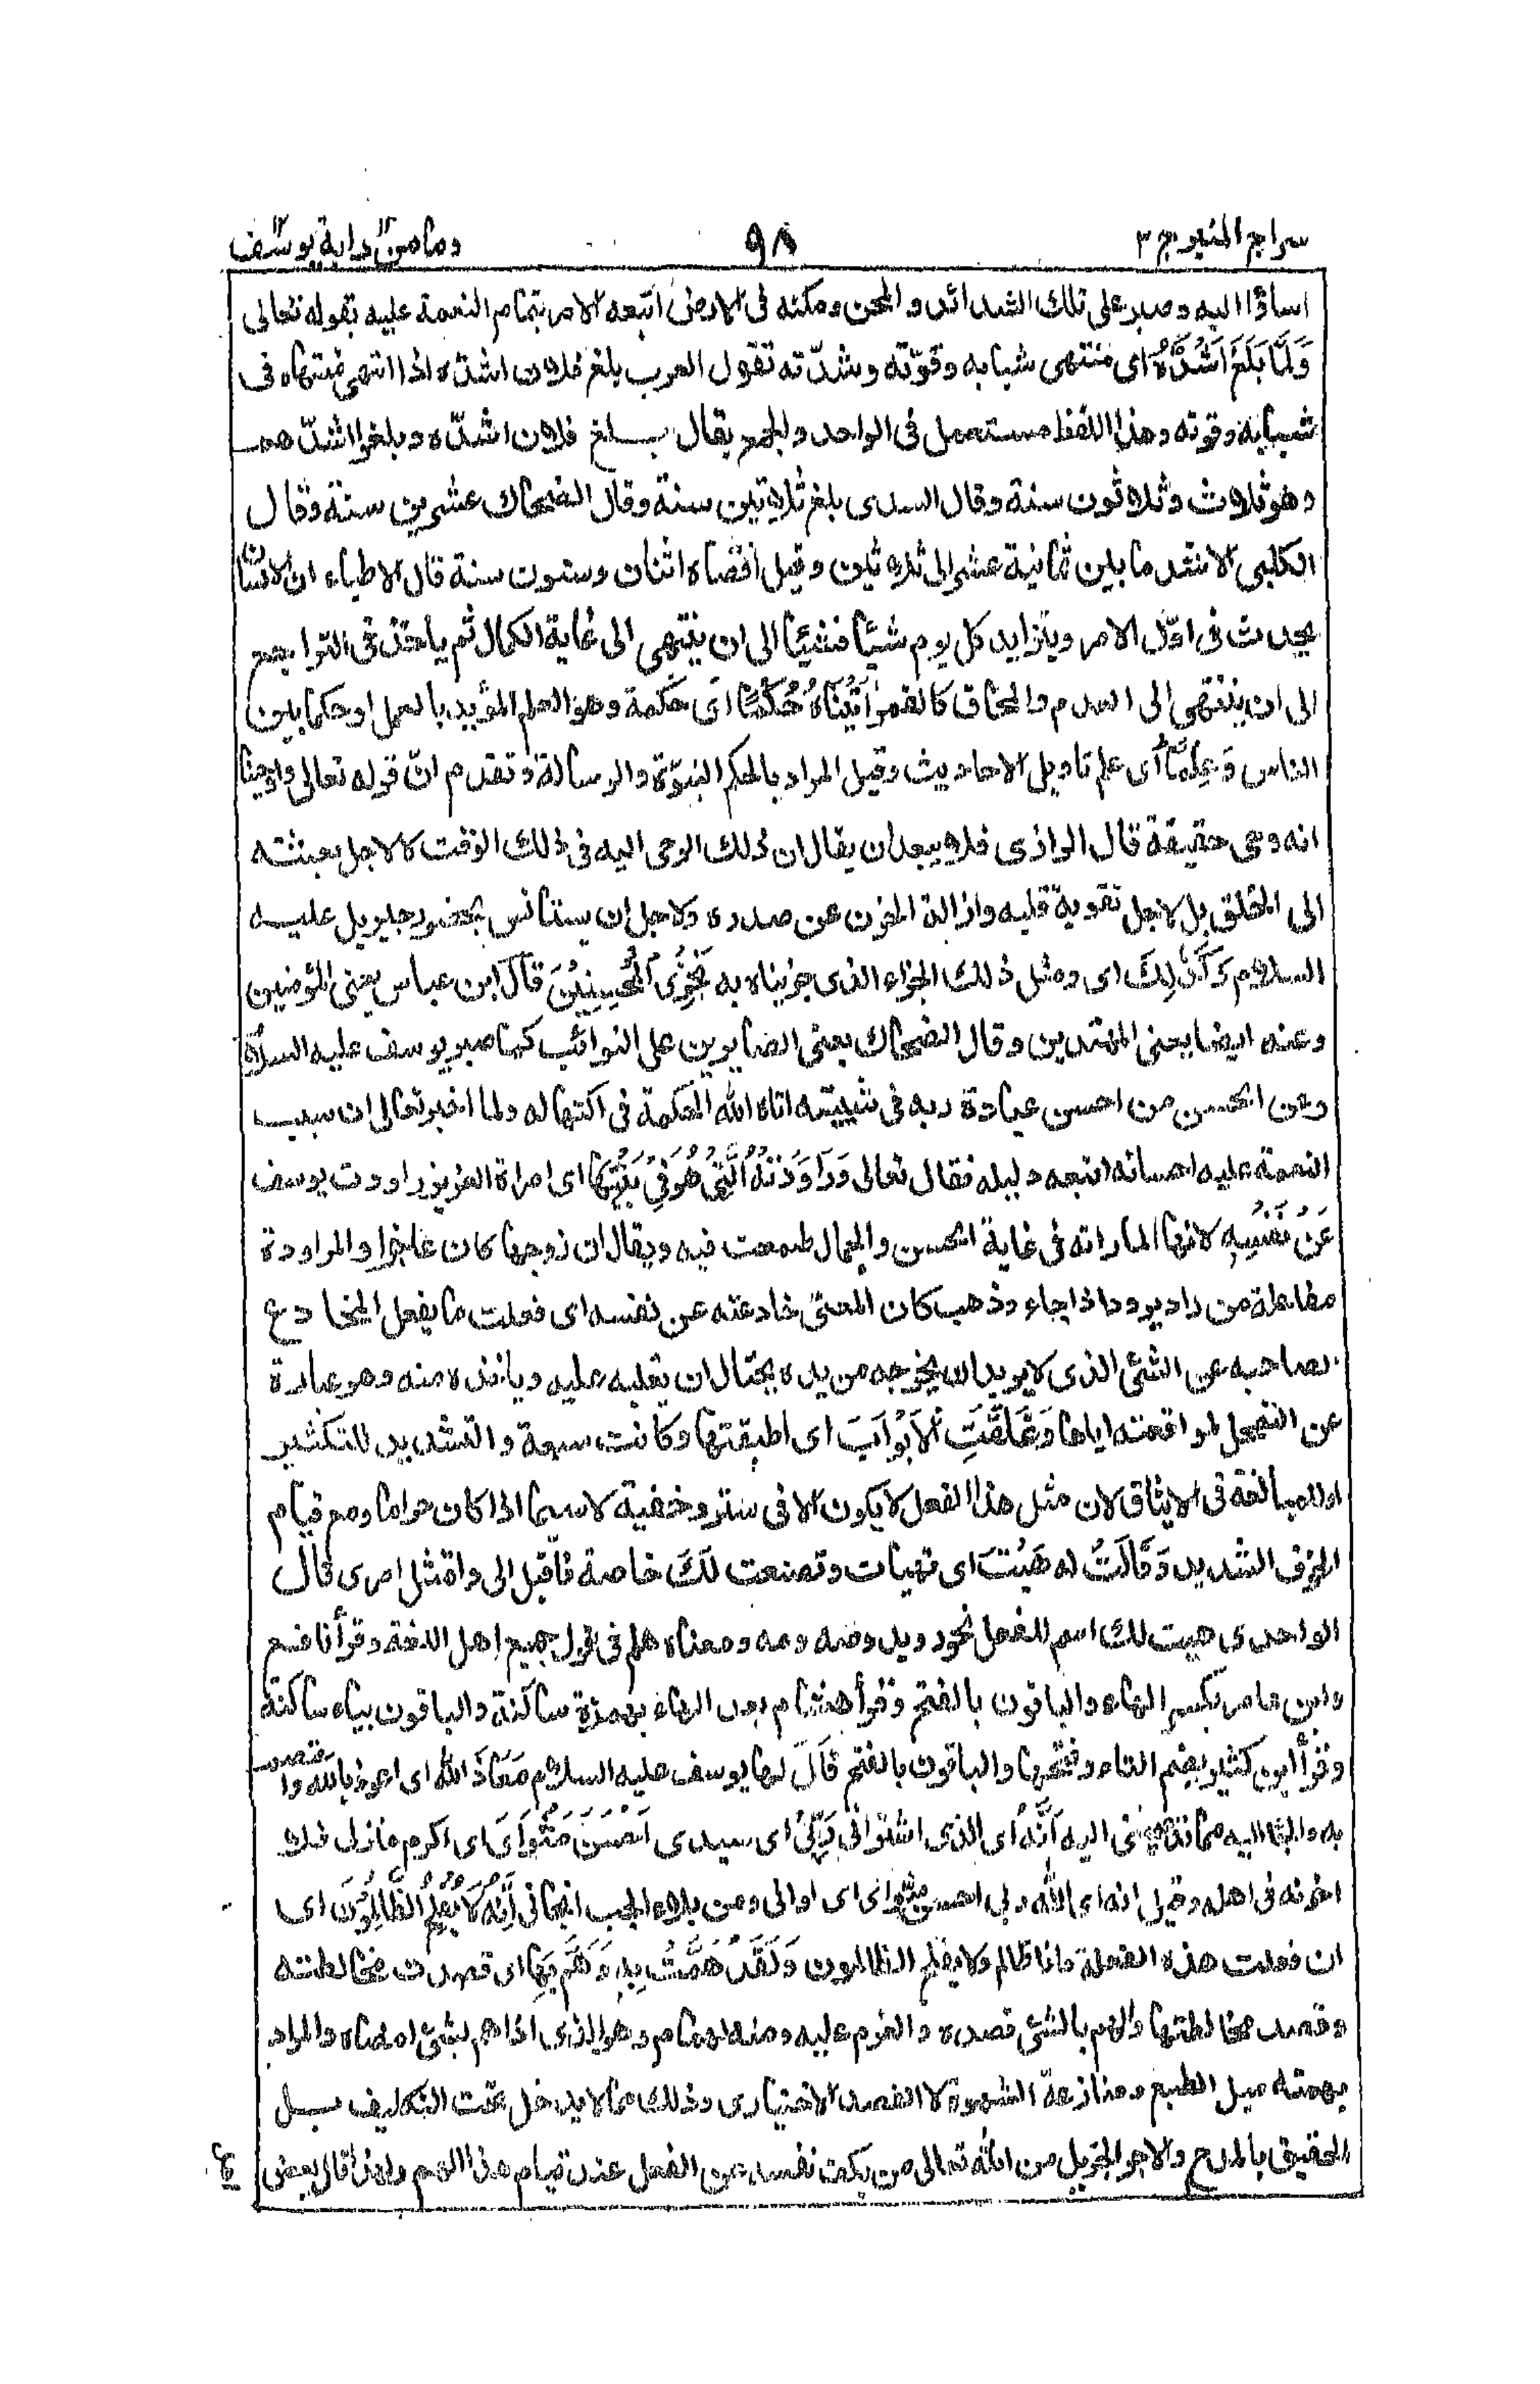 سراج المنير ج ٣
٩٨
ومامن دابة يوسف
اساؤا اليه وصبر على تلك الشدائد والمحن ومكنه فى الارض اتبعه الامر بتمام النعمة عليه بقوله تعالى
وَلَمَّا بَلَغَ اَشُدَّهُ اى منتهى شبابه وقوّته وشدّته تقول العرب بلغ فلان اشدّه اذا انتهى منتهاه فى
شبابه وقوته وهذا اللفظ مستعمل فى الواحد والجمع يقال بلغ فلان اشدّه وبلغوا اشدّهم
وهو ثلاث وثلاثون سنة وقال السدى بلغ ثلاثين سنة وقال الضحاك عشرين سنة وقال
الكلبى الاشد ما بين ثمانية عشر الى ثلاثين وقيل اقصاه اثنان وستون سنة قال الاطباء ان الانسان
يحدث فى اوّل الامر ويتزايد كل يوم شيئا فشيئا الى ان ينتهى الى غاية الكمال ثم ياخذ فى التراجع
الى ان ينتهى الى العدم والمحاق كالقمر اٰتَيْنَاهُ حُكْمًا اى حكمة وهو العلم المؤيد بالعمل او حكما بين
الناس وَعِلْمًا اى علم تاويل الاحاديث وقيل المراد بالحكم النبوّة والرسالة وتقدم انّ قوله تعالى واوحينا
انه وحى حقيقة قال الرازى فلا يبعد ان يقال ان ذلك الوحى اليه فى ذلك الوقت كا لاجل بعثته
الى الخلق بل لاجل تقوية قلبه وازالة الحزن عن صدره ولاجل ان يستانس بحضور جبريل عليه
السلام وَكَذٰلِكَ اى ومثل ذلك الجزاء الذى جزيناه به نَجْزِى الْمُحْسِنِيْنَ قال ابن عباس يعنى المؤمنين
وعنه ايضا يعنى المهتدين وقال الضحاك يعنى الصابرين على النوائب كما صبر يوسف عليه السلام
وعن الحسن من احسن عبادة ربه فى شبيبته اتاه الله الحكمة فى اكتهاله ولما اخبر تعالى ان سبب
النعمة عليه احسانه اتبعه دليله فقال تعالى وَرَاوَدَتْهُ الَّتِىْ هُوَ فِىْ بَيْتِهَا اى امراة العزيز راودت يوسف
عَنْ نَفْسِهٖ لانها لما راته فى غاية الحسن والجمال طمعت فيه ويقال ان زوجها كان عاجزا والمراودة
مفاعلة من راد يرود اذا جاء وذهب كان المعنى خادعته عن نفسه اى فعلت ما يفعل المخادع
بصاحبه عن الشئ الذى لا يريد ان يخرجه من يده يحتال ان يغلبه عليه وياخذه منه وهو عبارة
عن التمحل لمواقعته اياها وَغَلَّقَتِ الْاَبْوَابَ اى اطبقتها وكانت سبعة والتشديد للتكثير
او للمبالغة فى الايثاق لان مثل هذا الفعل لا يكون الا فى ستر وخفية لاسيما اذا كان حراما ومع قيام
الخوف الشديد وَقَالَتْ له هَيْتَ اى تهيات وتصنعت لَكَ خاصة فاقبل الى وامتثل امرى قال
الواحدى هيت لك اسم للفعل نحو رويد وصه ومه ومعناه هلم فى قول جميع اهل اللغة وقرأ نافع
وابن عامر بكسر الهاء والباقون بالفتح وقرأ هشام بعد الهاء بهمزة ساكنة والباقون بياء ساكنة
وقرأ ابن كثير بضم التاء وفتحها والباقون بالفتح قَالَ لها يوسف عليه السلام مَعَاذَ اللّٰهِ اى اعوذ بالله واعتصم
به والجأ اليه مما تدعوننى اليه اِنَّهٗ اى الذى اشترانى رَبِّىْ اى سيدى اَحْسَنَ مَثْوَاىَ اى اكرم منزلى فلا
اخونه فى اهله وقيل انه اى الله ربى احسن مثواى اى اوانى ومن بلاء الجب انجانى اِنَّهٗ لَا يُفْلِحُ الظّٰلِمُوْنَ اى
ان فعلت هذه الفعلة فانا ظالم ولا يفلح الظالمون وَلَقَدْ هَمَّتْ بِهٖ وَهَمَّ بِهَا اى قصدت مخالطته
وقصد مخالطتها والهم بالشئ قصده والعزم عليه ومنه الهمام وهو الذى اذا هم بشئ امضاه والمراد
بهمته ميل الطبع ومنازعة الشهوة لا القصد الاختيارى وذلك مما لا يدخل تحت التكليف بل
الحقيق بالمدح والاجر الجزيل من الله تعالى من يكف نفسه عن الفعل عند قيام هذا الهم ولهذا قال بعض